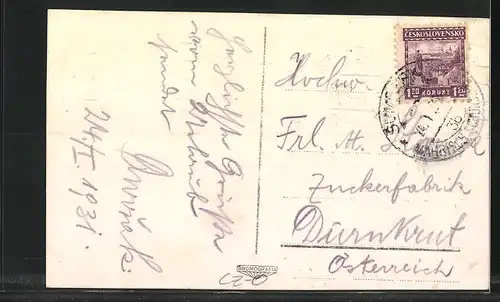 Herzlichste Grüße
vom Urlaub
sendet
24./I. 1931.
ČESKOSLOVENSKO
1.20 KORUNY 1.20
Hochw.
Frl. M.
Zuckerfabrik
Dürnkrut
Österreich
BROMOGRAFIA